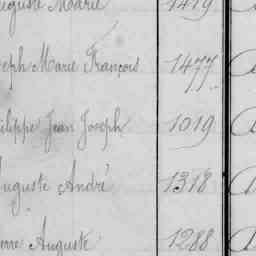 uguste Marie 1479
eph Marie François 1477
ilippe Jean Joseph 1019
uguste André 1318
erre Auguste 1288